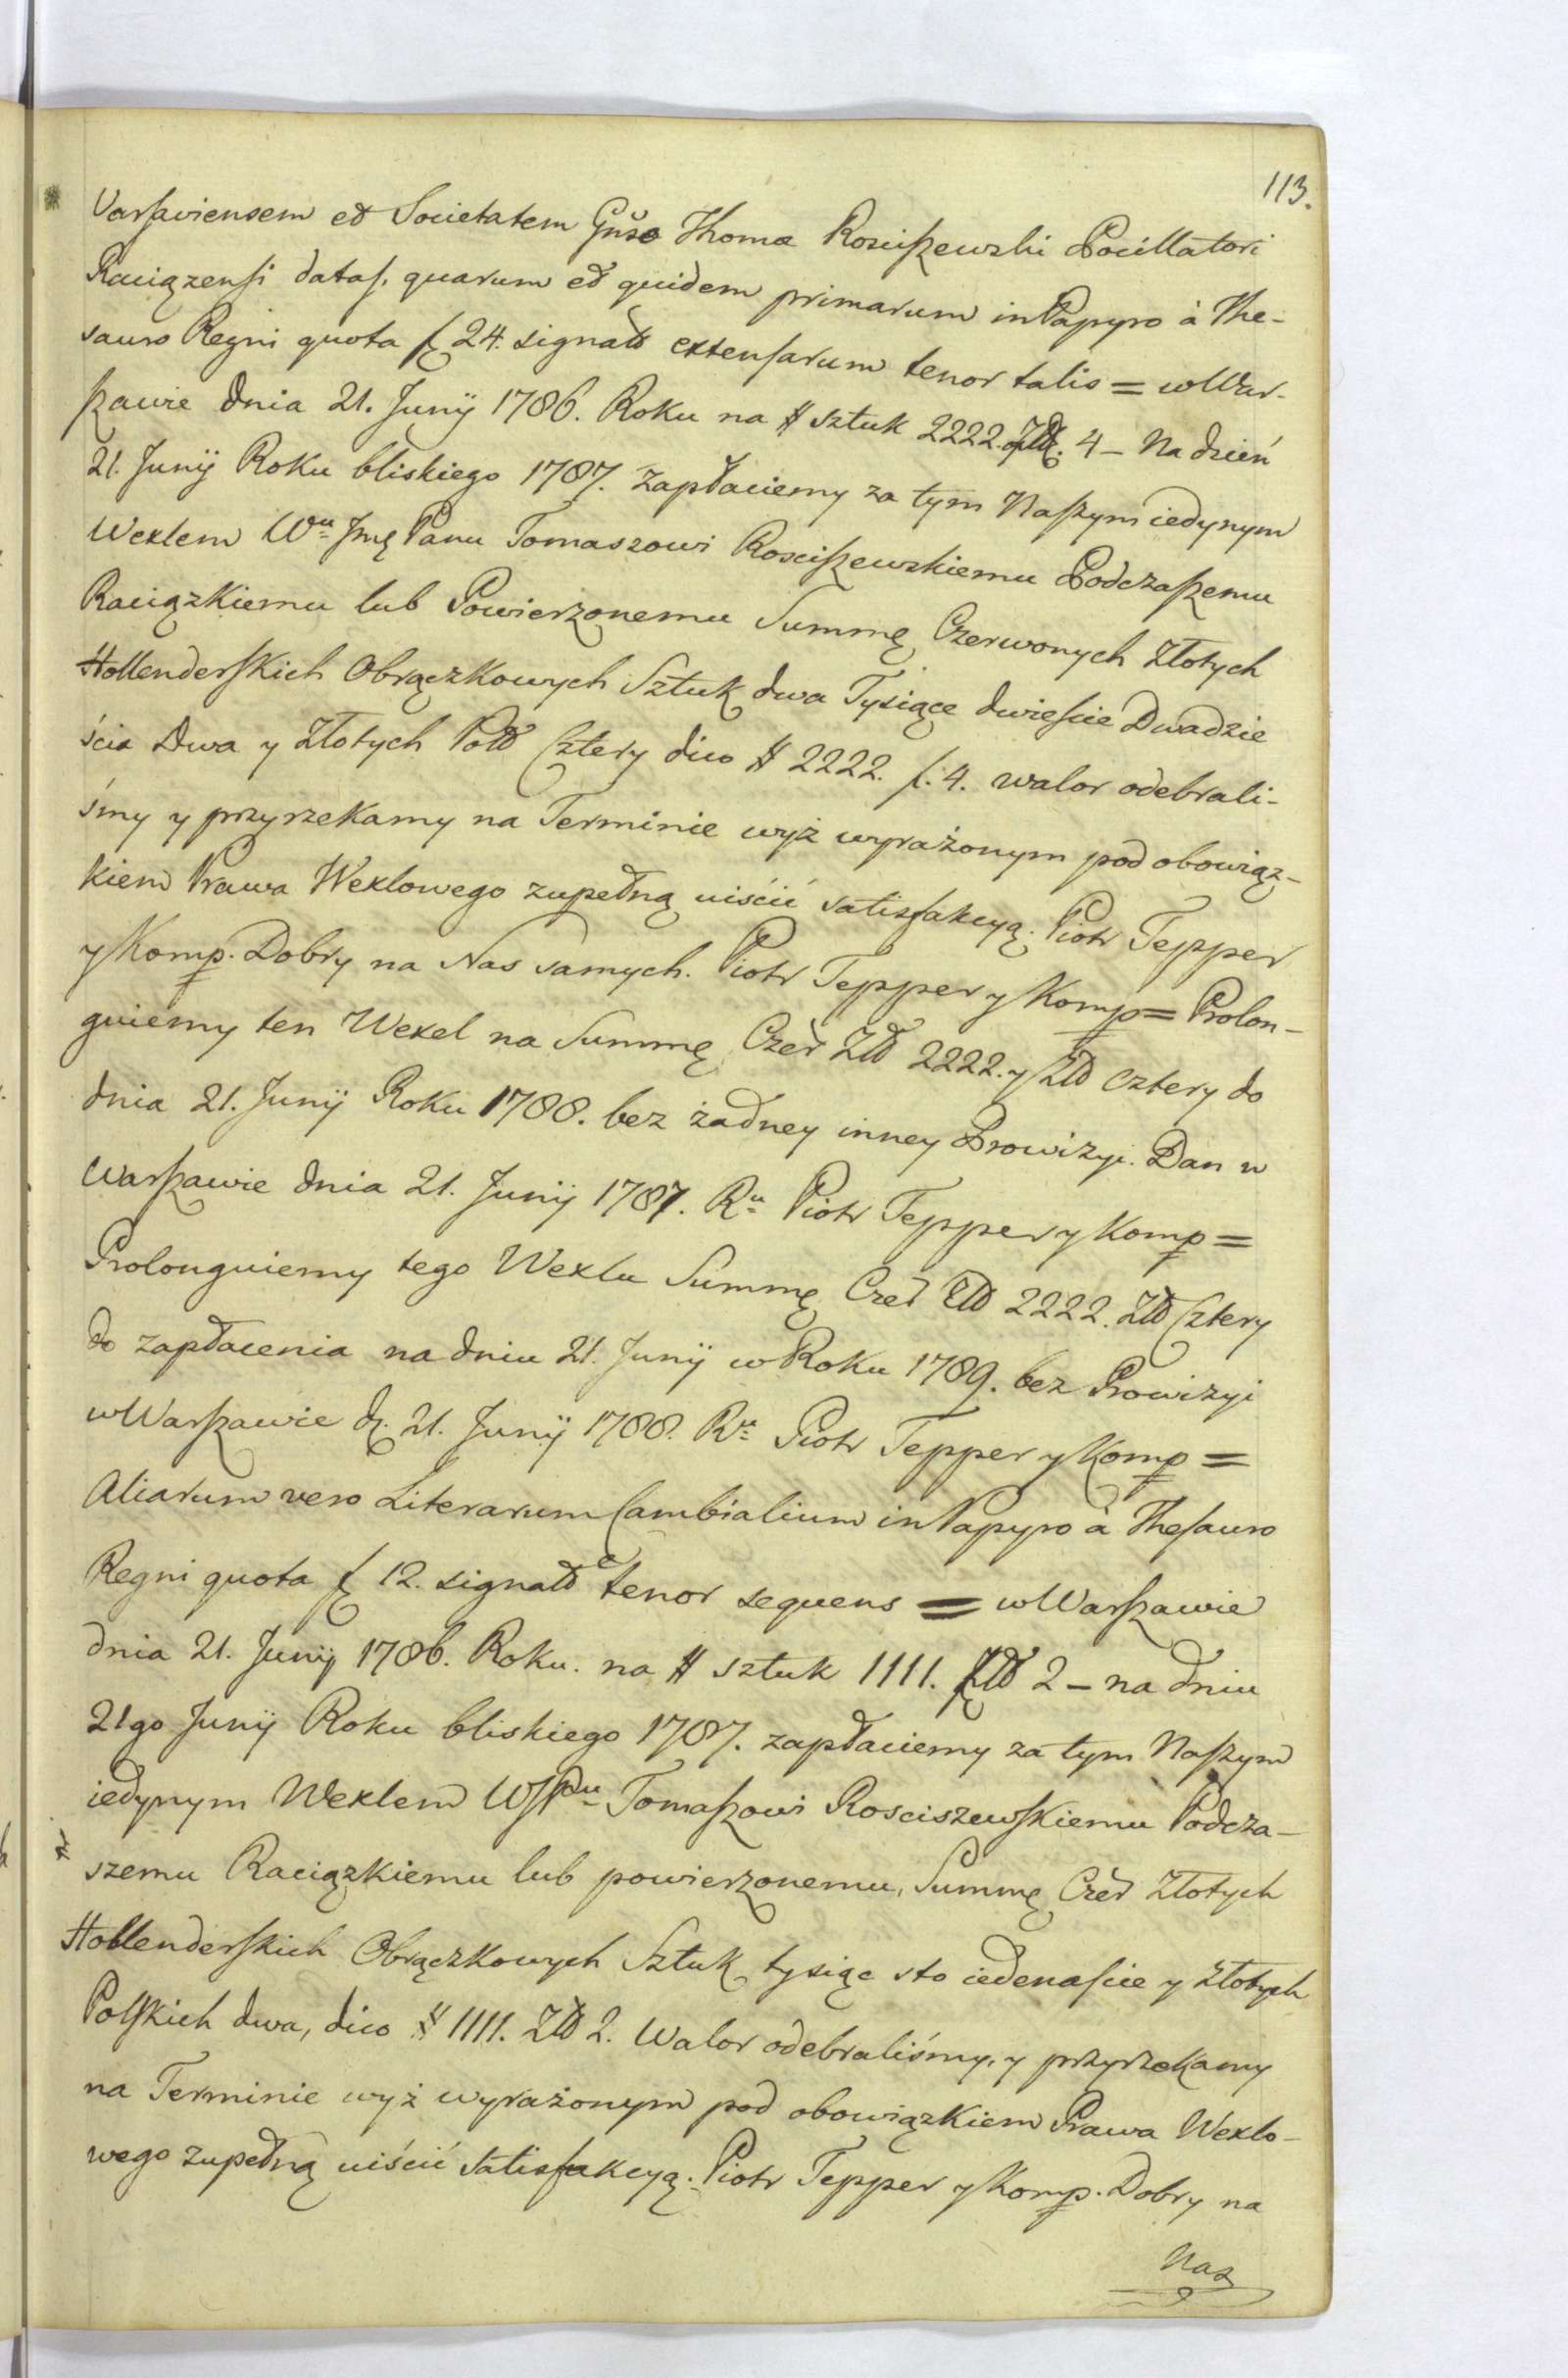 113.
Varszaviensem et Societatem Gnso Thomæ Rosciszewski Pocillatori
Raciązensi datas, quarum et quidem primarum in Papyro à The-
sauro Regni quota f 24. signatt extensarum tenor talis = w War-
szawie dnia 21. Junij 1786. Roku na # sztuk 2222. Złł. 4 – Na dzień
21. Junij Roku bliskiego 1787. zapłaciemy za tym Naszym iedynym
Wexlem Wu Jmę Panu Tomaszowi Rosciszewskiemu Podczaszemu
Raciązkiemu lub Powierzonemu Summę Czerwonych Złotych
Hollenderskich Obrączkowych Sztuk dwa Tysiące dwieście Dwadzie
ścia Dwa y Złotych Poll Cztery dico # 2222. f. 4. walor odebrali-
śmy y przyrzekamy na Terminie wyż wyrażonym pod obowiąz-
kiem Prawa Wexlowego zupełną uiścić satisfakcyą. Piotr Tepper
y Komp. Dobry na Nas samych. Piotr Tepper y Komp = Prolon-
guiemy ten Wexel na Summę Czer Złł 2222. y Złł cztery do
dnia 21. Junij Roku 1788. bez żadney inney Prowizyi. Dan w
Warszawie dnia 21. Junij 1787. Ru Piotr Tepper y Komp =
Prolonguiemy tego Wexlu Summę Czer Złł 2222. Złł Cztery
do zapłacenia na dniu 21. Junij w Roku 1789. bez Prowizyi
w Warszawie d. 21. Junij 1788. Ru Piotr Tepper y Komp =
Aliarum vero Literarum Cambialium in Papyro à Thesauro
Regni quota f 12. signatt tenor sequens = w Warszawie
dnia 21. Junij 1786. Roku. na # sztuk 1111. Złł 2 – na dniu
21go Junij Roku bliskiego 1787. zapłaciemy za tym Naszym
iedynym Wexlem WJPu Tomaszowi Rosciszewskiemu Podcza-
szemu Raciązkiemu lub powierzonemu, Summę Czer Złotych
Hollenderskich Obrączkowych Sztuk tysiąc sto iedenaście y złotych
Polskich dwa, dico # 1111. Złł 2. Walor odebraliśmy, y przyrzekamy
na Terminie wyż wyrażonym pod obowiązkiem Prawa Wexlo-
wego zupełną uiścić Satisfakcyą. Piotr Tepper y Komp. Dobry na
Nas